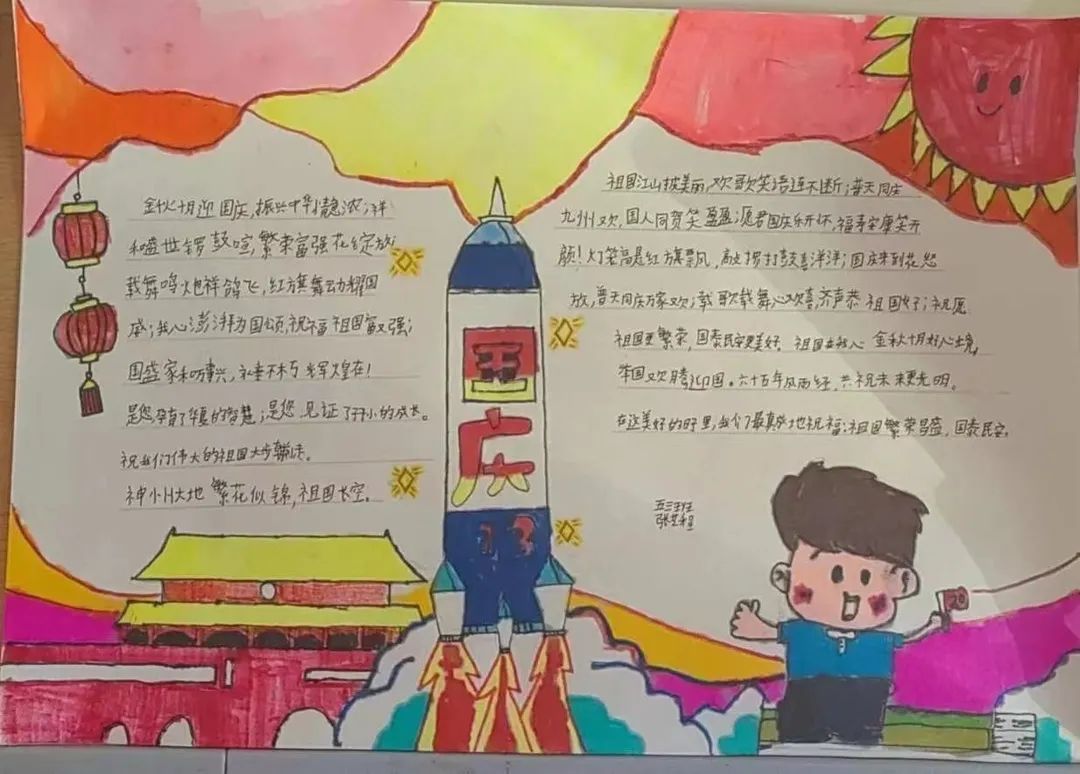 金秋十月迎国庆,振兴中华情意浓;祥
和盛世锣鼓喧,繁荣富强花绽放
载舞鸣炮祥鸽飞,红旗舞动耀国
威;我心澎湃为国颂,祝福祖国富又强;
国盛家和万事兴,永垂不朽辉煌在!
是您,孕育了华夏的智慧;是您,见证了开小的成长。
祝我们伟大的祖国大步
神州大地 繁花似锦,祖国长空。
国庆
13
祖国江山披美丽,欢歌笑语连不断;普天同庆
九州欢,国人同贺笑盈盈;愿君国庆乐开怀,福寿安康笑开
颜!灯笼高是红旗飘风,敲锣打鼓喜洋洋;国庆来到花怒
放,普天同庆万家欢;载歌载舞心欢喜,齐声恭祖国好;祝愿
祖国更繁荣,国泰民安更美好。祖国在我心 金秋十月好心境,
举国欢腾迎国。六十五年风雨经,共祝未来更光明。
在这美好的时里,我们最真挚地祝福:祖国繁荣昌盛,国泰民安。
五三班
张艺程